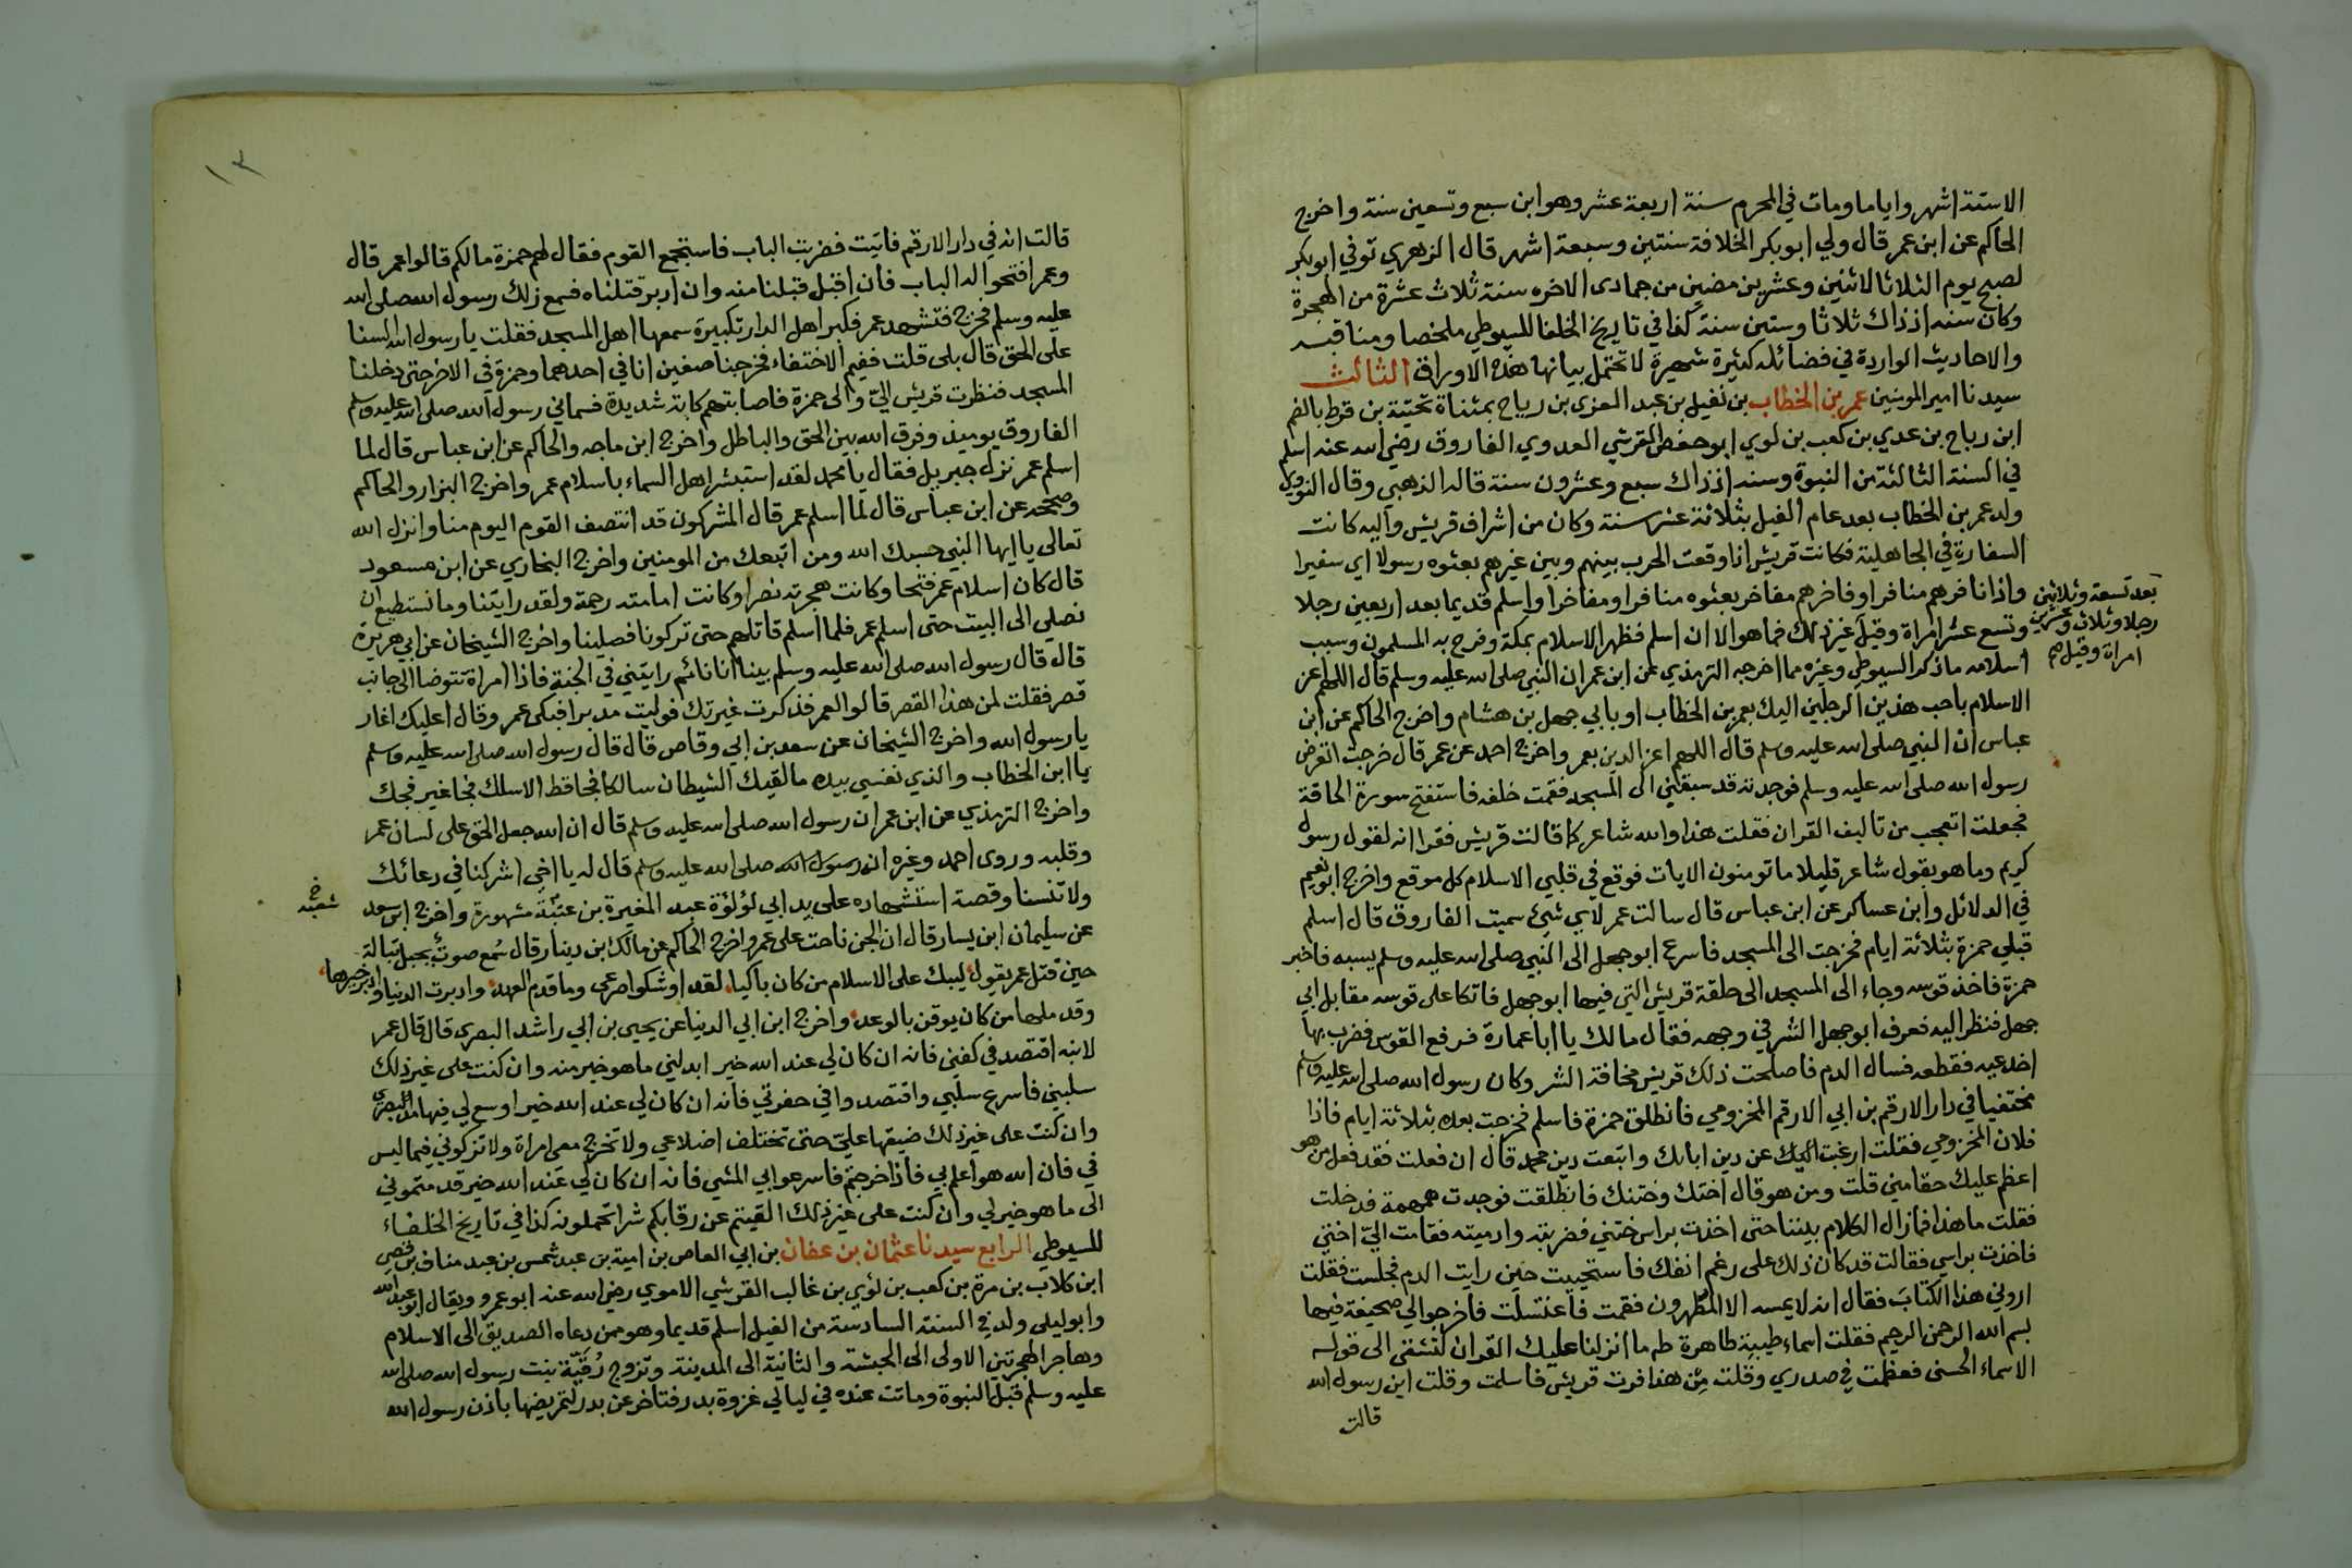 الاستة اشهر واياما ومات في المحرم سنة اربعة عشر وهو ابن سبع وتسعين سنة واخرج
الحاكم عن ابن عمر قال ولي ابو بكر الخلافة سنتين وسبعة اشهر قال الزهري توفي ابو بكر
لصبح يوم الثلاثا لاثنين وعشرين مضين من جمادى الاخره سنة ثلاث عشرة من الهجرة
وكان سنه اذ ذاك ثلاثا وستين سنة كذا في تاريخ الخلفا للسيوطي ملخصا ومناقبه
والاحاديث الواردة في فضائله كثيرة شهيرة لا تحتمل بيانها هذه الاوراق الثالث
سيدنا امير المومنين عمر بن الخطاب بن نفيل بن عبد العزى بن رياح بمثناة تحتية بن قرط بالضم
ابن رباح بن عدي بن كعب بن لوي ابو حفص القرشي العدوي الفاروق رضي الله عنه اسلم
في السنة الثالثة من النبوة وسنه اذ ذاك سبع وعشرون سنة قاله الذهبي وقال النووي
ولد عمر بن الخطاب بعد عام الفيل بثلاثة عشر سنة وكان من اشراف قريش واليه كانت
السفارة في الجاهلية فكانت قريش اذا وقعت الحرب بينهم وبين غيرهم بعثوه رسولا اي سفيرا
واذا نافرهم منافر او فاخرهم مفاخر بعثوه منافرا ومفاخرا واسلم قديما بعد اربعين رجلا
بعد تسعة وثلاثين
رجلا وثلاث وعشرين
امراة وقيل هم
وتسع عشر امراة وقيل غير ذلك فما هو الا ان اسلم فظهر الاسلام بمكة وفرح به المسلمون وسبب
اسلامه ما ذكر السيوطي وغيره مما اخرجه الترمذي عن ابن عمر ان النبي صلى الله عليه وسلم قال اللهم اعز
الاسلام باحب هذين الرجلين اليك بعمر بن الخطاب او بابي جهل بن هشام واخرج الحاكم عن ابن
عباس ان النبي صلى الله عليه وسلم قال اللهم اعز الدين بعمر واخرج احمد عن عمر قال خرجت اتعرض
رسول الله صلى الله عليه وسلم فوجدته قد سبقني الى المسجد فقمت خلفه فاستفتح سورة الحاقة
فجعلت اتعجب من تاليف القران فقلت هذا والله شاعر كما قالت قريش فقرا انه لقول رسول
كريم وما هو بقول شاعر قليلا ما تومنون الايات فوقع في قلبي الاسلام كل موقع واخرج ابو نعيم
في الدلائل وابن عساكر عن ابن عباس قال سالت عمر لاي شيئ سميت الفاروق قال اسلم
قبلي حمزة بثلاثة ايام فخرجت الى المسجد فاسرع ابو جهل الى النبي صلى الله عليه وسلم يسبه فاخبر
حمزة فاخذ قوسه وجاء الى المسجد الى حلقة قريش التي فيها ابو جهل فاتكا على قوسه مقابل ابي
جهل فنظر اليه فعرف ابو جهل الشر في وجهه فقال مالك يا ابا عمارة فرفع القوس فضرب بها
اخدعيه فقطعه فسال الدم فاصلحت ذلك قريش مخافة الشر وكان رسول الله صلى الله عليه وسلم
مختفيا في دار الارقم بن ابي الارقم المخزومي فانطلق حمزة فاسلم فخرجت بعده بثلاثة ايام فاذا
فلان المخزومي فقلت ارغبت اليك عن دين ابائك واتبعت دين محمد قال ان فعلت فقد فعل من هو
اعظم عليك حقا مني قلت ومن هو قال اختك وختنك فانطلقت فوجدت همهمة فدخلت
فقلت ما هذا فما زال الكلام بيننا حتى اخذت براس ختني فضربته وادميته فقامت اليّ اختي
فاخذت براسي فقالت قد كان ذلك على رغم انفك فاستحييت حين رايت الدم فجلست فقلت
اروني هذا الكتاب فقال انه لا يمسه الا المطهرون فقمت فاغتسلت فاخرجوا لي صحيفة فيها
بسم الله الرحمن الرحيم فقلت اسماء طيبة طاهرة طه ما انزلنا عليك القران لتشقى الى قوله
الاسماء الحسنى فعظمت في صدري وقلت مِن هذا فرت قريش فاسلمت وقلت اين رسول الله
قالت
١٣
قالت انه في دار الارقم فاتيت فضربت الباب فاستجمع القوم فقال لهم حمزة مالكم قالوا عمر قال
وعمر افتحوا له الباب فان اقبل قبلنا منه وان ادبر قتلناه فسمع ذلك رسول الله صلى الله
عليه وسلم فخرج فتشهد عمر فكبر اهل الدار تكبيرة سمعها اهل المسجد فقلت يا رسول الله السنا
على الحق قال بلى قلت ففيم الاختفاء فخرجنا صفين انا في احدهما وحمزة في الاخر حتى دخلنا
المسجد فنظرت قريش اليّ والى حمزة فاصابتهم كابة شديدة فسماني رسول الله صلى الله عليه وسلم
الفاروق يوميذ وفرق الله بين الحق والباطل واخرج ابن ماجه والحاكم عن ابن عباس قال لما
اسلم عمر نزل جبريل فقال يا محمد لقد استبشر اهل السماء باسلام عمر واخرج البزار والحاكم
وصححه عن ابن عباس قال لما اسلم عمر قال المشركون قد انتصف القوم اليوم منا وانزل الله
تعالى يا ايها النبي حسبك الله ومن اتبعك من المومنين واخرج البخاري عن ابن مسعود
قال كان اسلام عمر فتحا وكانت هجرته نصرا وكانت امامته رحمة ولقد رايتنا وما نستطيع ان
نصلي الى البيت حتى اسلم عمر فلما اسلم قاتلهم حتى تركونا فصلينا واخرج الشيخان عن ابي هريرة
قال قال رسول الله صلى الله عليه وسلم بينا انا نائم رايتني في الجنة فاذا امراة تتوضا الى جانب
قصر فقلت لمن هذا القصر قالوا لعمر فذكرت غيرتك فوليت مدبرا فبكى عمر وقال اعليك اغار
يا رسول الله واخرج الشيخان عن سعد بن ابي وقاص قال قال رسول الله صلى الله عليه وسلم
يا ابن الخطاب والذي نفسي بيده ما لقيك الشيطان سالكا فجا قط الا سلك فجا غير فجك
واخرج الترمذي عن ابن عمر ان رسول الله صلى الله عليه وسلم قال ان الله جعل الحق على لسان عمر
وقلبه وروى احمد وغيره ان رسول الله صلى الله عليه وسلم قال له يا اخي اشركنا في دعائك
ولا تنسنا وقصة استشهاده على يد ابي لؤلؤة عبد المغيرة بن عتبة مشهورة واخرج ابن سعد
خ
شعبه
عن سليمان ابن يسار قال ان الجن ناحت على عمر واخرج الحاكم عن مالك ابن دينار قال سُمع صوت بجبل تبالة
حين قتل عمر يقول لييك على الاسلام من كان باكيا لقد اوشكوا صرعى وما قدم العهد وادبرت الدنيا وادبر خيرها
وقد ملها من كان يوقن بالوعد واخرج ابن ابي الدنيا عن يحيى بن ابي راشد البصري قال قال عمر
لابنه اقتصد في كفني فانه ان كان لي عند الله خير ابدلني ما هو خير منه وان كنت على غير ذلك
سلبني فاسرع سلبي واقتصدوا في حفرتي فانه ان كان لي عند الله خير اوسع لي فيها مد البصر
وان كنت على غير ذلك ضيقها عليّ حتى تختلف اضلاعي ولا تخرج معي امراة ولا تزكوني فيما ليس
في فان الله هو اعلم بي فاذا خرجتم فاسرعوا بي المشي فانه ان كان لي عند الله خير قدمتموني
الى ما هو خير لي وان كنت على غير ذلك القيتم عن رقابكم شرا تحملونه كذا في تاريخ الخلفاء
للسيوطي الرابع سيدنا عثمان بن عفان بن ابي العاص بن امية بن عبد شمس بن عبد مناف بن قصي
ابن كلاب بن مرة بن كعب بن لؤي بن غالب القرشي الاموي رضي الله عنه ابو عمرو ويقال ابو عبد الله
وابو ليلى ولد في السنة السادسة من الفيل اسلم قديما وهو ممن دعاه الصديق الى الاسلام
وهاجر الهجرتين الاولى الى الحبشة والثانية الى المدينة وتزوج رُقيّة بنت رسول الله صلى الله
عليه وسلم قبل النبوة وماتت عنده في ليالي غزوة بدر فتاخر عن بدر لتمريضها باذن رسول الله